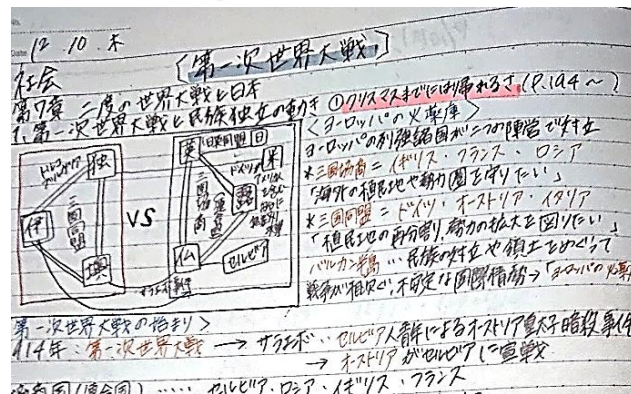 12. 10. 木
〔第一次世界大戦〕
社会
第7章 二度の世界大戦と日本
1. 第一次世界大戦と民族独立の動き ①クリスマスまでには帰れるさ (P.194〜)
〈ヨーロッパの火薬庫〉
ヨーロッパの列強諸国が二つの陣営で対立
*三国協商=イギリス・フランス・ロシア
「海外の植民地や勢力圏を守りたい」
*三国同盟=ドイツ・オーストリア・イタリア
「植民地の再分割、勢力の拡大を図りたい」
バルカン半島…民族の対立や領土をめぐって
戦争が相次ぐ、不安定な国際情勢→「ヨーロッパの火薬
独
伊
墺
三国同盟
VS
英
日英同盟
日
米
露
仏
三国協商
セルビア
第一次世界大戦の始まり〉
914年 第一次世界大戦 → サラエボ…セルビア人青年によるオーストリア皇太子暗殺事件
→ オーストリアがセルビアに宣戦
(連合国)…… セルビア・ロシア・イギリス・フランス